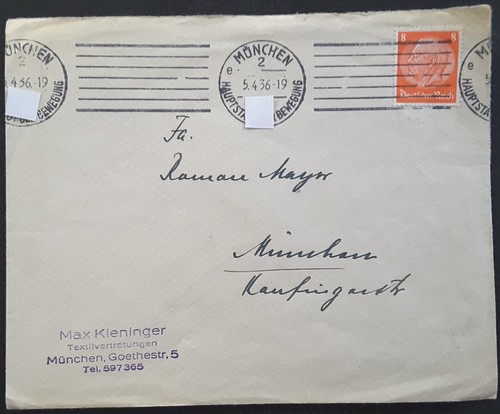 MÜNCHEN
2
5.4.36-19
MÜNCHEN
2
e
5.4.36-19
HAUPTSTA BEWEGUNG
8 8
Deutsches Reich
e
HAUPTSTA
Fa.
Roman Mayr
München
Kaufingerstr
Max Kleninger
Textilvertretungen
München, Goethestr. 5
Tel. 597365